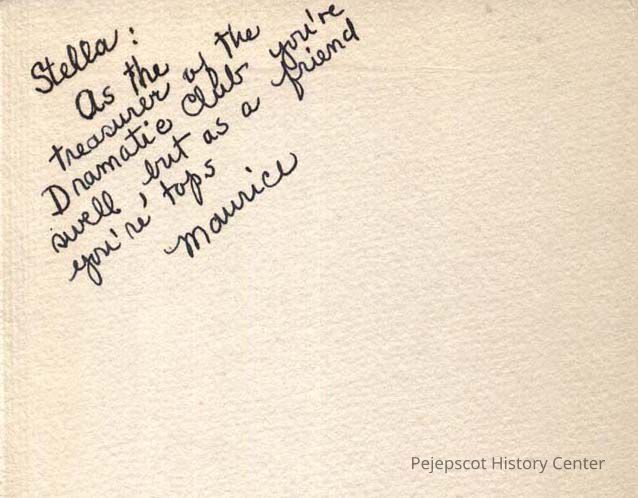 Stella:
As the
treasurer of the
Dramatic Club you're
swell, but as a friend
you're tops
Maurice
Pejepscot History Center